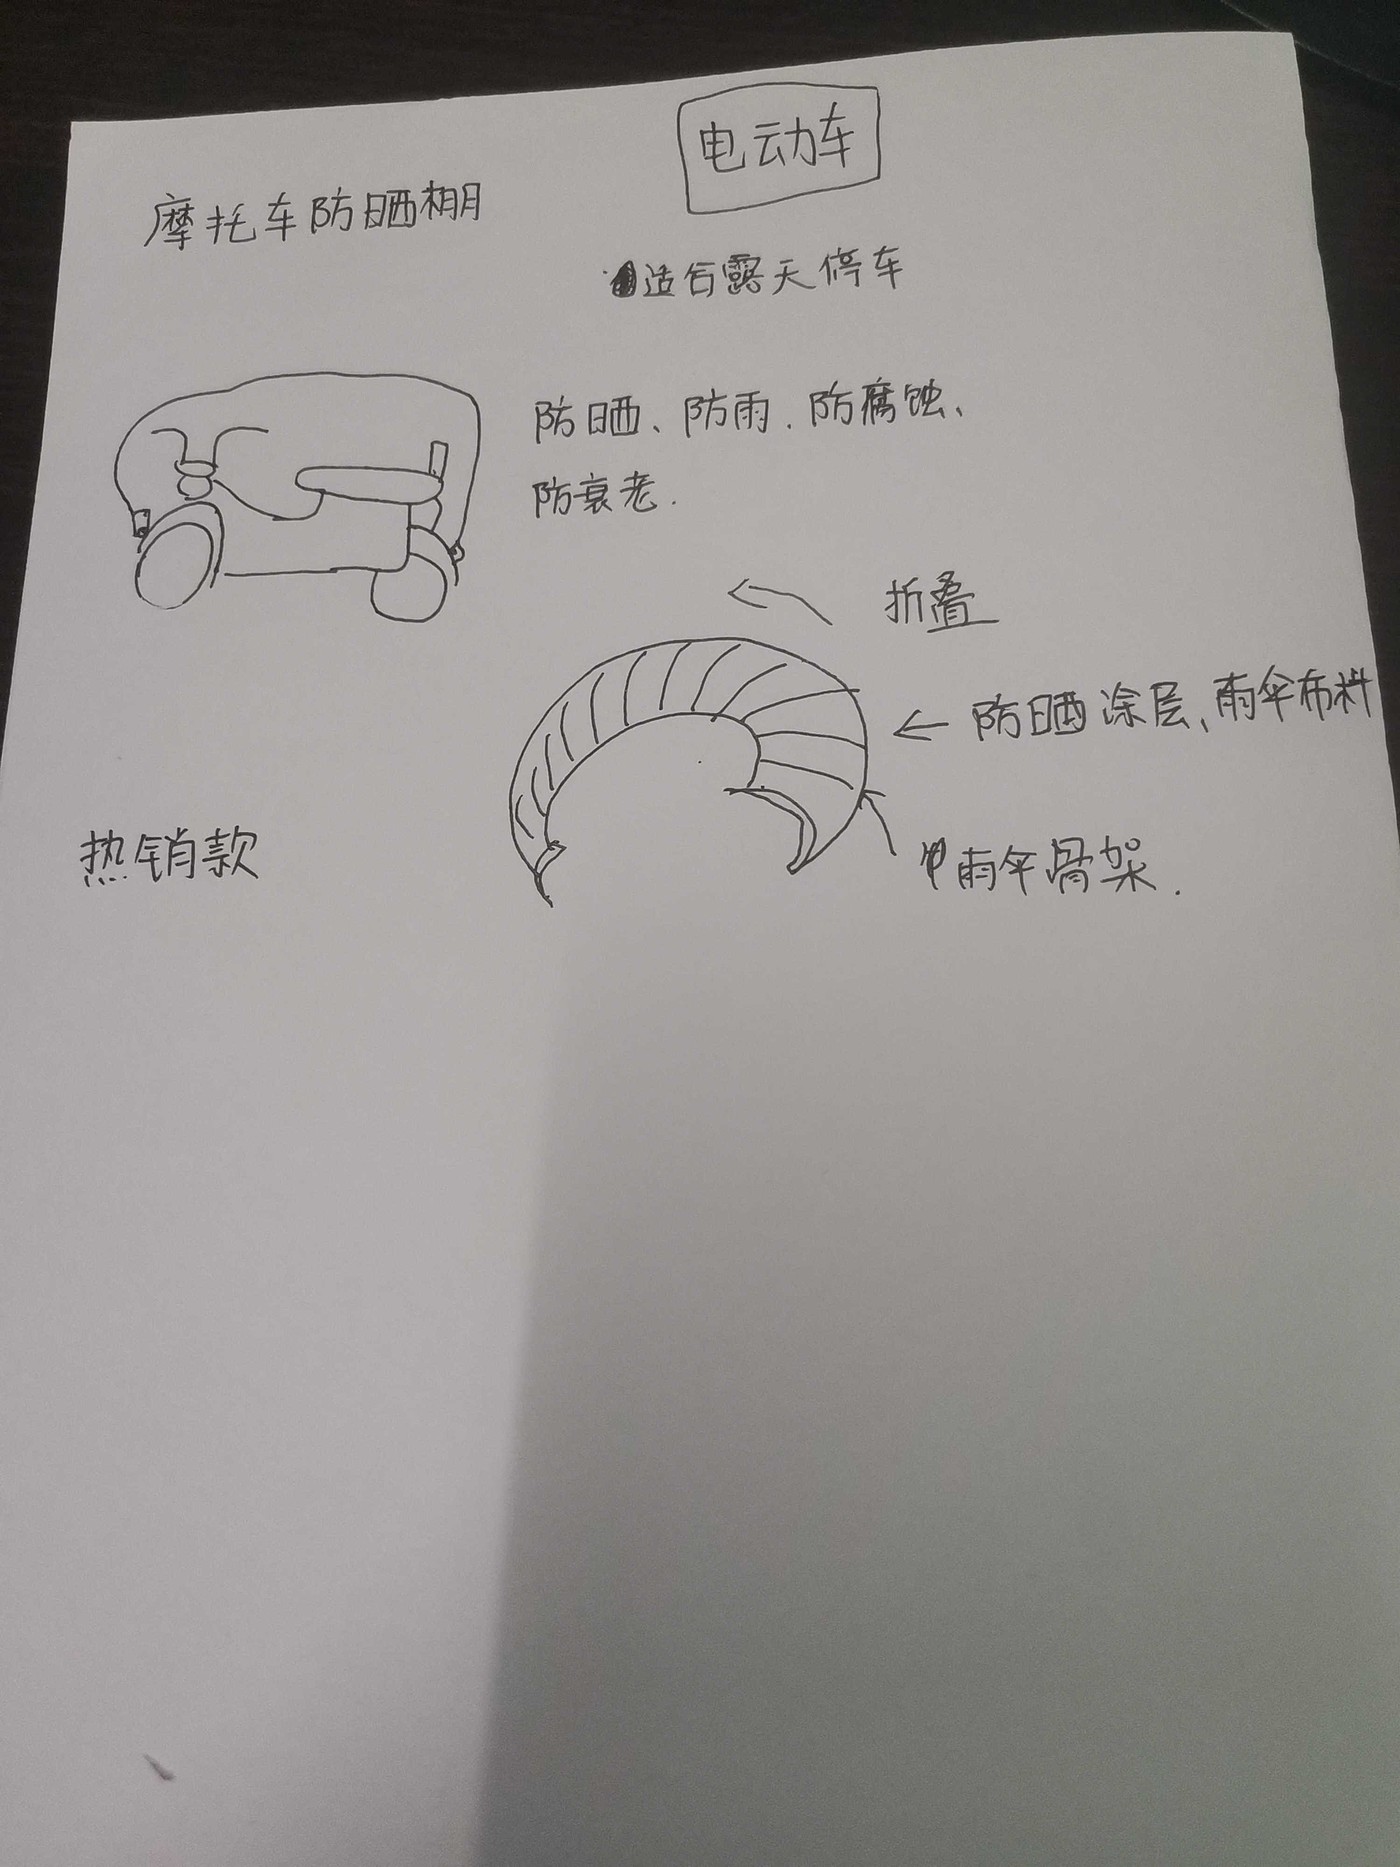 电动车
摩托车防晒棚
适合露天停车
防晒、防雨.防腐蚀、
防衰老.
折叠
防晒涂层、雨伞布料
雨伞骨架.
热销款